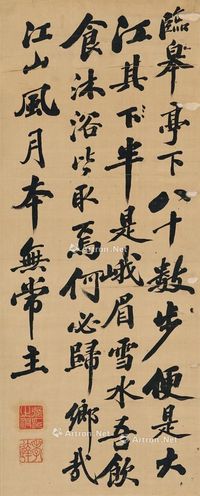 臨皋亭下八十數步便是大
江其下半是峨眉雪水吾飲
食沐浴皆取焉何必歸鄉哉
江山風月本無常主
Artron.Net